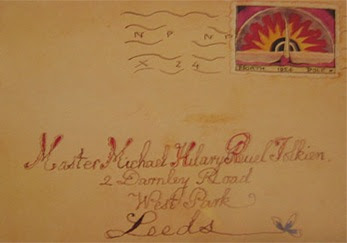 N P N P
X 24
NORTH 1924 POLE
Master Michael Hilary Reuel Tolkien,
2 Darnley Road
West Park
Leeds